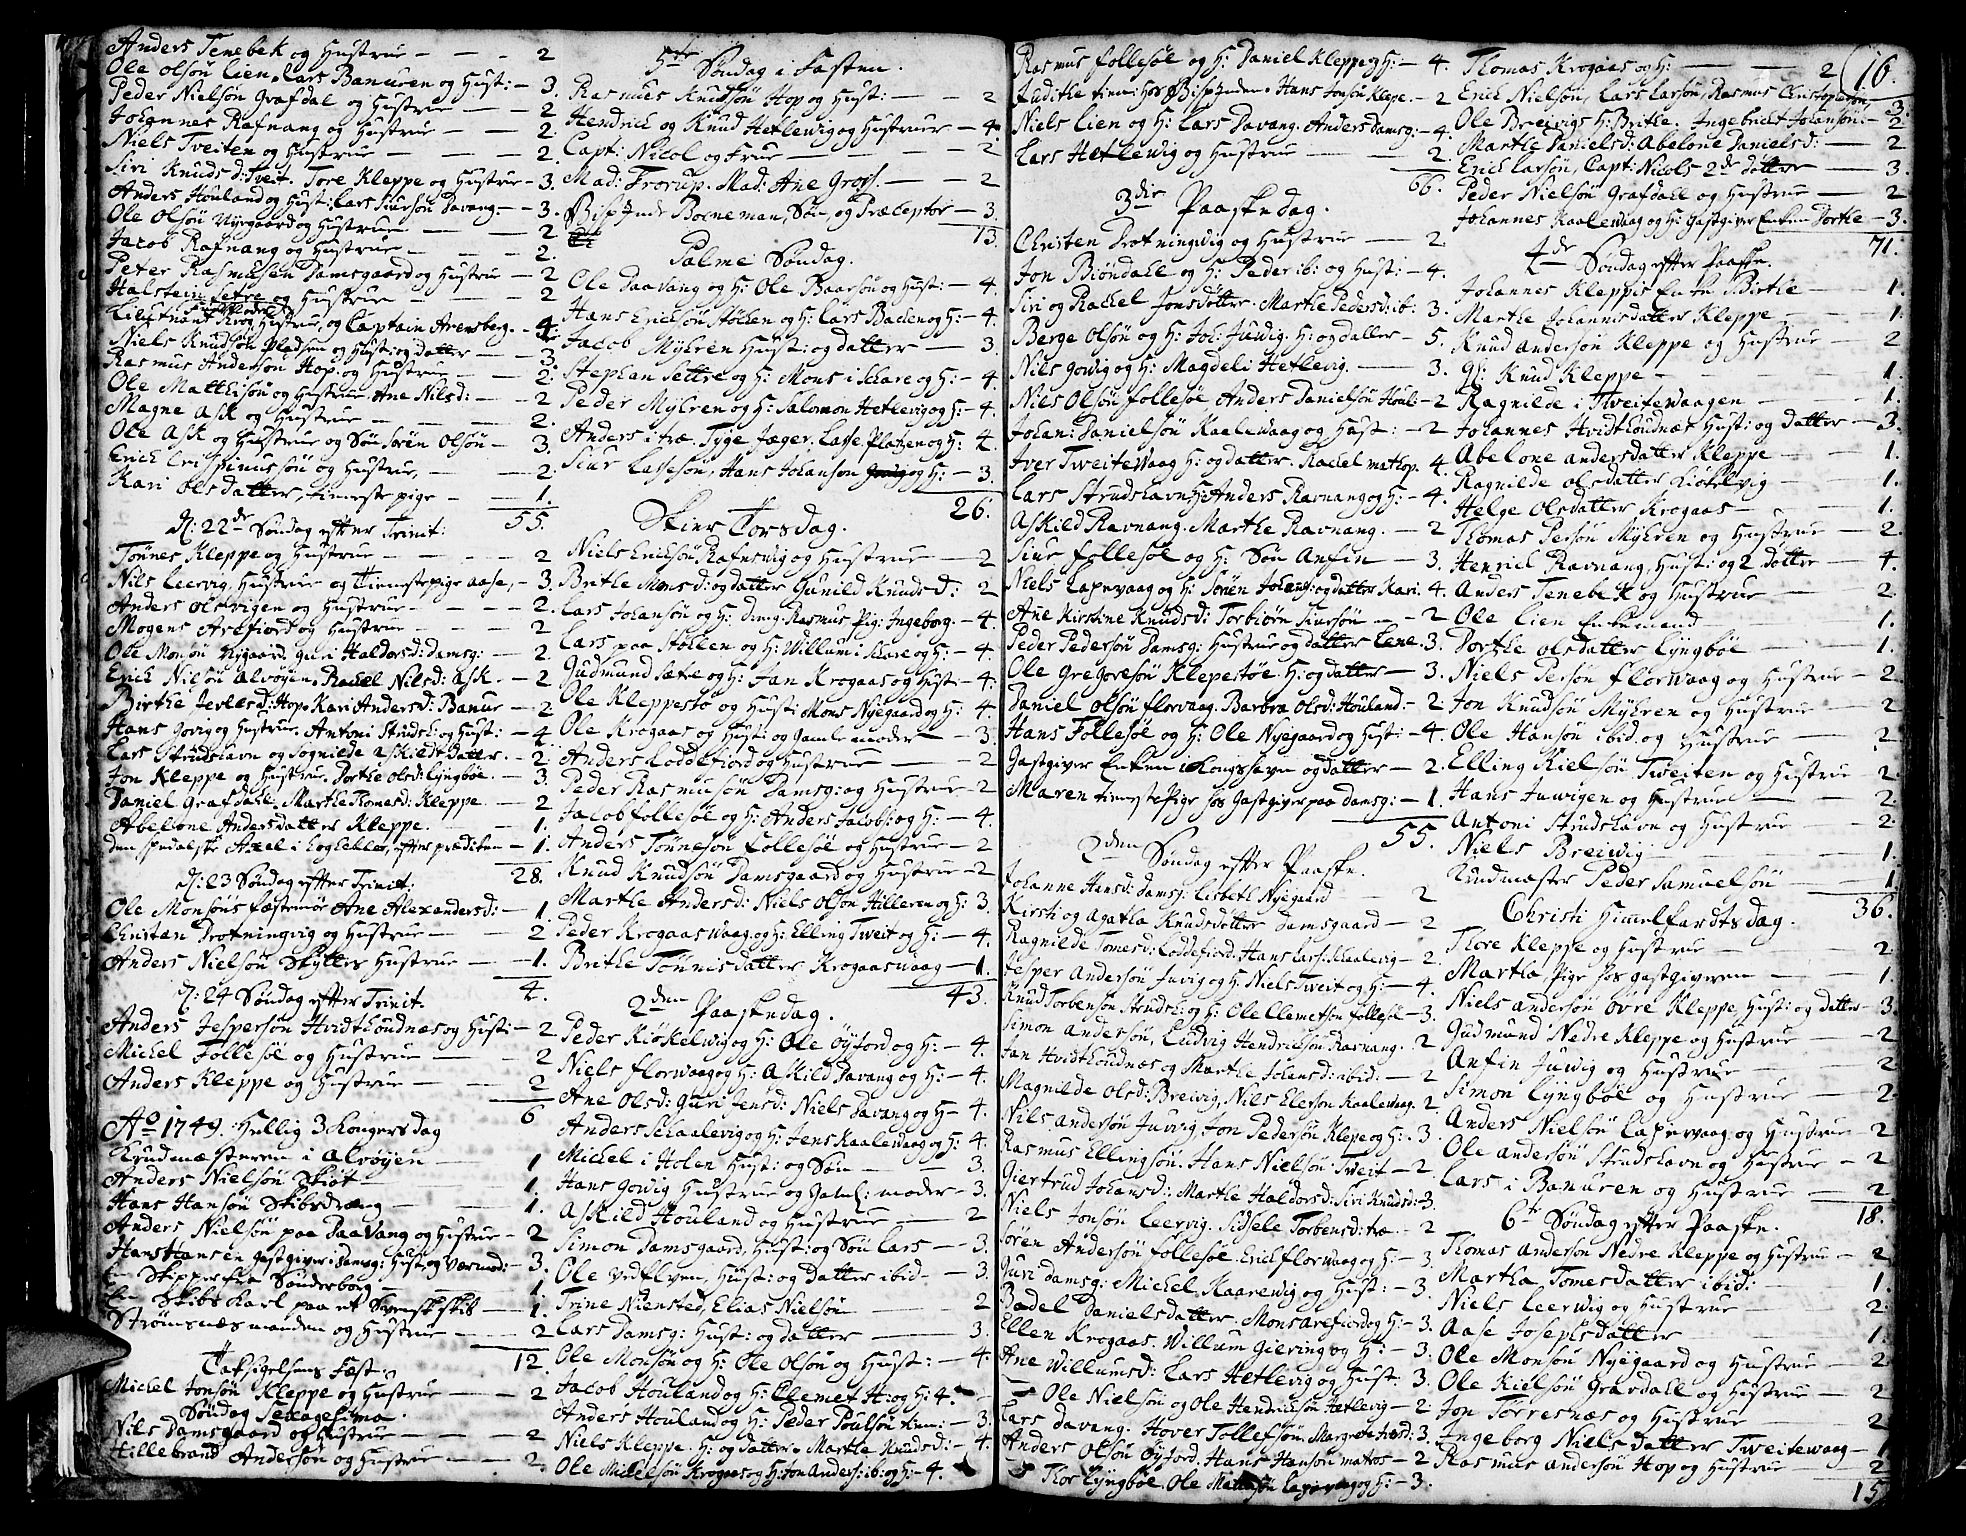 Anders Tenebek og Hustrue — 2
Ole Olsön Lien, Lars Banuren og Hust: — 3.
Peder Nielsön Grafdal og Hustrue — 2
Johannes Rafnang og Hustrue — 2.
Niels Tveiten og Hustrue — 2.
Siri Knudsd: Tveit. Tore Kleppe og Hustrue — 3.
Anders Houland og Hust: Lars Siursön Davang. — 3.
Ole Olsön Nyegaard og Hustrue — 2
Jacob Rafnang og Hustrue — 2.
Peter Rasmusen Damsgaard og Hustrue — 2
Halstein Setre og Hustrue — 2
Lieutnant Krog Hustrue, og Captain Arensberg. — 4.
Niels Knudsön Pladsen og Hust: og datter — 3.
Rasmus Andersön Hop. og Hustrue — 2.
Ole Matthisön og Hustrue, Ane Nilsd: — 2
Magne Ask og Hustrue — 2.
Ole Ask og Hustrue og Sön Sören Olsön — 3.
Erich Crispinussön og Hustrue, — 2.
Kari Olsdatter, tieneste pige — 1.
55.
D: 22de Söndag efter Trinit:
Tönnes Kleppe og Hustrue — 2
Nils Leervig, Hustrue og Tienestepige Aase, — 3.
Anders Olsvigen og Hustrue — 2.
Mogens Arefiord og Hustrue — 2
Ole Monsön Nygaard. Guri Haldorsd: Damsg: — 2.
Erich Nilsön Alvöyen. Rachel Nilsd: Ask. — 2
Birthe Jerlesd: Hop. Kari Andersd: Banur — 2
Hans Govig og Hustrue. Antoni Strudsh: og Hust: — 4
Lars Strudshavn og Sognilde Askildtdatter. — 2
Jon Kleppe og Hustrue. Dorthe Olsd: Lyngböe. — 3.
Daniel Grafdahl. Marthe Thomesd: Kleppe — 2
Abelone Andersdatter Kleppe. — 1.
den spedalske Axel i Loghellen, efter prædiken — 1.
28.
D: 23 Söndag efter Trinit:
Ole Monsöns fæstemöe Ane Alexandersd: — 1.
Christen Drotningvig og Hustrue — 2
Anders Nielsön Skyttes Hustrue — 1.
4.
D: 24 Söndag efter Trinit.
Anders Jespersön Hvidthoudnæs og Hust: — 2
Michel Follesöe og Hustrue — 2
Anders Kleppe og Hustrue — 2
6
Ao 1749. Hellig 3 Kongers dag
Krudmesteren i Alvöyen — 1
Anders Nielsön Skiöt — 1.
Hans Hansön Skibsdræng — 1.
Anders Nielsön paa Daavang og Hustrue — 2
Hans Hansen Gastgiver i Damsg: Hust, og Værmod: — 3.
En Skipper fra Sönderborg — 1.
En Skibs Karl paa et Svensk skib — 1.
Strömsnæs manden og Hustrue — 2
12
Taksigelsens Fæst:
Michel Jonsön Kleppe og Hustrue — 2
Söndag Sexagesima.
Nils Damsgaard og Hustrue — 2
Hillebrand Andersön og Hustrue — 2.
5te Söndag i Fasten.
Rasmus Knudsön Hop og Hust: — 2
Hendrich og Knud Hetlevig og Hustruer — 4.
Capt: Nicol og Frue — 2
Mad: Trorup. Mad: Ane Grøs. — 2
Bisp Inde Borneman, Sön, og Præceptor — 3.
13.
Palme Söndag.
Ole Daavang og H: Ole Baarsön og Hust: — 4.
Hans Erichsön Stöhlen og H: Lars Bachen og H: — 4.
Jacob Myhren Hust: og datter — 3.
Stephan Settre og H: Mons i Skare og H: — 4.
Peder Myhren og H: Salomon Hetlevig og H: — 4.
Anders i træ. Tyge Jæger. Lasse Platzen og H: — 4.
Siur Lassesön, Hans Johansön og H: — 3.
26.
Skier Torsdag.
Niels Erichsön Rafnswig og Hustrue — 2
Brithe Monsd: og datter Gunild Knudsd: — 2
Lars Johansön og H: dreng Rasmus Pig: Ingeborg. — 4.
Lars paa Stöhlen og H: Willum i Skare og H: — 4.
Gudmund Sætre og H: Jan Krogaas og Hust: — 4.
Ole Kleppestö og Hust: Mons Nyegaard og H: — 4.
Ole Krogaas og Hust: og gamle moder — 3.
Anders Loddefiord og Hustrue — 2
Peder Rasmusön Damsg: og Hustrue — 2
Jacob Follesöe og H: Anders Jacobs: og H: — 4.
Anders Tönnesön Follesöe og Hustrue — 2
Knud Knudsön Damsgaard og Hustrue — 2
Marthe Andersd: Niels Olsön Hilleren og H: — 3.
Peder Krogaaswaag og H: Elling Tweit og H: — 4.
Brithe Tönnisdatter Krogaaswaag — 1.
43.
2den Paaskedag.
Peder Kiökelwig og H: Ole Öyford og H: — 4.
Niels Florwaag og H: Askild Davang og H: — 4.
Ane Olsd: Guri Jensd: Niels Davang og H — 4.
Anders Schaalevig og H: Jens Kaalewaag og H: — 4.
Michel i Holen Hust: og Sön — 3.
Hans Gowig Hustrue og Gaml: moder — 3.
Askild Houland og Hustrue — 2
Simon Damsgaard. Hust: og Sön Lars — 3.
Ole ved Elven, Hust: og Datter ibid — 3.
Trine Niensted, Elias Nielsön — 2
Lars Damsg: Hust: og datter — 3.
Ole Monsön og H: Ole Olsön og Hust: — 4.
Jacob Houland og H: Clemet H: og H: — 4.
Anders Houland og H: Peder Poulsön tien: — 3.
Niels Kleppe. H: og datter. Marthe Knudsd: — 4.
Ole Michelsön Krogaas og H: Jon Anders: ib: og H: — 4.
Rasmus Follesöe og H: Daniel Kleppe og H: — 4.
Judithe tien: hos Bisp Inden. Hans Jonsön Klepe. — 2
Niels Lien og H: Lars Davang. Anders Damsg: — 4.
Lars Hetlewig og Hustrue — 2.
66.
3die Paaskedag.
Christen Drotningwig og Hustrue — 2
Jon Biöndahl og H: Peder ib: og Hust: — 4.
Siri og Rachel Jonsdötter. Marthe Pedersd: ib: 3.
Berge Olsön og H: Joh: Juvig. H: og datter — 5.
Nils Govig og H: Magdeli Hetlevig. — 3.
Nils Olsön Follesöe Anders Danielsön Houl: — 2
Johan: Danielsön Kaalewaag og Hust: — 2
Iver Tweitewaag H: og datter. Rachel Mathop. 4.
Lars Strudshavn H: Anders Ravnang og H: — 4.
Askild Ravnang. Marthe Ravnang. — 2
Siur Follesöe og H: Sön Anfin — 3.
Niels Lapewaag og H: Sören Johans: og datter Kari. 4.
Ane Kirstine Knudsd: Torbiörn Siursön — 2
Peder Pedersön Damsg: Hustrue og datter Lene. 3.
Ole Gregoresön Klepestöe H: og datter — 3.
Daniel Olsön Florvaag. Barbra Olsd: Houland. — 2
Hans Follesöe og H: Ole Nyegaard og Hust: — 4.
Gastgiver Enken i Kongshavn og datter — 2.
Maren tieneste Pige hos Gastgiver paa Damsg: — 1.
55.
2den Söndag efter Paaske.
Johanne Hansd: Damsg: Lisbeth Nyegaard — 2
Kirsti og Agatha Knudsdötter Damsgaard — 2
Ragnilde Tomesd: Loddefiord. Hans Lars: Skaalevig — 2.
Jesper Andersön Juvig og H: Niels Tweit og H: — 4.
Knud Torbensön Strudsh: og H: Ole Clemetsön Follesöe — 3.
Simon Andersön, Ludvig Hendrichsön Ravnang. 2
Jan Hvidthoudnæs og Marthe Johansd: ibid: — 2
Magnilde Olsd: Breivig, Nils Elersön Kaalewaag. 2
Nils Andersön Juvig Jon Pedersön Klepe og H: 3.
Rasmus Ellingsön. Hans Nielsön Tweit — 2
Giertrud Johansd: Marthe Haldorsd: Siri Knudsd: 3.
Niels Jonsön Leervig. Sidsele Torbensd: træ. — 2
Sören Andersön Follesöe. Erich Florwaag og H: — 3.
Guri Damsg: Michel Kaarewig og Hust: — 3.
Bodel Danielsdatter. Mons Arefiord og H: — 3.
Ellen Krogaas. Willum Giering og H: — 3.
Ane Willumsd: Lars Hetlevig og Hust: 3.
Ole Nielsön og Ole Hendrichsön Hetlevig — 2
Lars Davang. Hover Tollefsön. Margrete 3.
Anders Olsön Öyford. Hans Hansön matros — 2
Thor Lyngböe. Ole Lapewaag og H: — 3.
16.
Thomas Krogaas og H: — 2
Erich Nielsön, Lars Larsön, Rasmus Christophersön 3.
Ole Breivigs H: Brithe. Ingebricht Johansön: — 2
Marthe Danielsd: Abelone Danielsd: — 2
Erich Larsön, Capt: Nicols 2de döttre — 3.
Peder Nielsön Grafdall og Hustrue — 2
Johannes Kaalewaag og H: Gastgiver Enken Dorthe — 3.
71.
4de Söndag efter Paaske.
Johannes Kleppis Enke Birthe — 1.
Marthe Johannisdatter Kleppe — 1.
Knud Andersön Kleppe og Hustrue — 2
Gl: Knud Kleppe — 1.
Ragnilde i Tweitewaagen — 1.
Johannes Hvidthoudnæs Hust: og datter — 3.
Abelone Andersdatter Kleppe — 1.
Ragnilde Olsdatter Kiökelvig — 1.
Helge Olsdatter Krogaas — 1.
Thomas Persön Myhren og Hustrue — 2.
Henrich Ravnang, Hust: og 2 döttre — 4.
Anders Tenebek og Hustrue — 2
Ole Lien Enkemand — 1.
Dorthe Olsdatter Lyngböe — 1.
Niels Persön Florwaag og Hustrue — 2.
Jon Knudsön Myhren og Hustrue — 2
Ole Hansön ibid. og Hustrue — 2
Elling Kielsön Tweiten og Hustrue 2.
Hans Juwigen og Hustrue — 2.
Antoni Strudshavn og Hustrue — 2.
Niels Breiwig — 1.
Krudmæster Peder Samuelsön — 1
36.
Christi Himmelfardts dag.
Thore Kleppe og Hustrue — 2.
Martha Pige hos Gastgiveren — 1.
Niels Andersön övre Kleppe Hust: og datter — 3.
Gudmund Nedre Kleppe og Hustrue — 2
Anfin Juwig og Hustrue — 2.
Simon Lyngböe og Hustrue — 2.
Anders Nielsön Lapewaag: og Hustrue — 2
Ole Andersön Strudshavn og Hustrue — 2
Lars i Banuren og Hustrue — 2
18.
6te Söndag efter Paaske.
Thomas Andersön Nedre Kleppe og Hustrue — 2
Martha Tomesdatter ibid: — 1.
Niels Leerwig og Hustrue — 2.
Aase Josephsdatter — 1.
Ole Monsön Nyegaard og Hustrue — 2
Ole Kielsön Gravdall og Hustrue — 2
Jon Törresnæs og Hustrue — 2
Ingeborg Nielsdatter Tweitewaag — 1
Rasmus Andersön Hop og Hustrue — 2
15